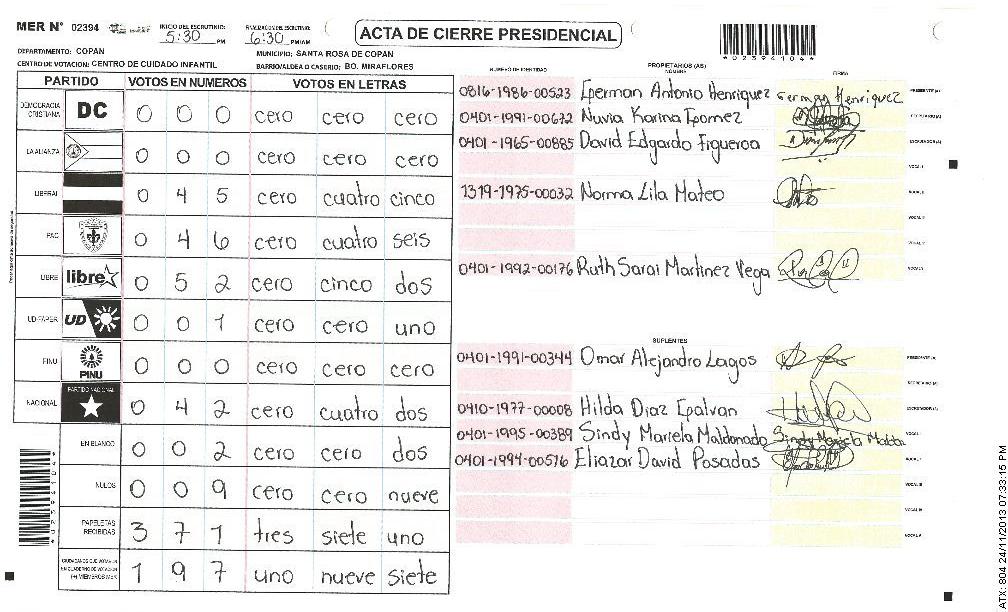 MER N° 02394
INICIO DEL ESCRUTINIO: 5:30 PM
FINALIZACIÓN DEL ESCRUTINIO: 6:30 PM/AM
ACTA DE CIERRE PRESIDENCIAL
*02394104*
DEPARTAMENTO: COPAN
MUNICIPIO: SANTA ROSA DE COPAN
CENTRO DE VOTACION: CENTRO DE CUIDADO INFANTIL
BARRIO/ALDEA O CASERIO: BO. MIRAFLORES
PARTIDO VOTOS EN NUMEROS VOTOS EN LETRAS
DEMOCRACIA CRISTIANA DC 0 0 0 cero cero cero
LA ALIANZA 0 0 0 cero cero cero
LIBERAL 0 4 5 cero cuatro cinco
PAC 0 4 6 cero cuatro seis
LIBRE libre 0 5 2 cero cinco dos
UD-FAPER UD 0 0 1 cero cero uno
PINU PINU 0 0 0 cero cero cero
NACIONAL PARTIDO NACIONAL 0 4 2 cero cuatro dos
EN BLANCO 0 0 2 cero cero dos
NULOS 0 0 9 cero cero nueve
PAPELETAS RECIBIDAS 3 7 1 tres siete uno
CIUDADANOS QUE VOTARON EN CUADERNO DE VOTACION (+) MIEMBROS MER 1 9 7 uno nueve siete
NUMERO DE IDENTIDAD PROPIETARIOS (AS) NOMBRE FIRMA
0816-1986-00523 German Antonio Henriquez German Henriquez PRESIDENTE (A)
0401-1991-00672 Nuvia Karina Gomez SECRETARIO (A)
0401-1965-00885 David Edgardo Figueroa ESCRUTADOR (A)
VOCAL I
1319-1975-00032 Norma Lila Mateo VOCAL II
VOCAL III
VOCAL IV
0401-1992-00176 Ruth Sarai Martinez Vega VOCAL V
SUPLENTES
0401-1991-00344 Omar Alejandro Lagos PRESIDENTE (A)
SECRETARIO (A)
0410-1977-00008 Hilda Diaz Galvan ESCRUTADOR (A)
0401-1995-00389 Sindy Mariela Maldonado Sindy Mariela Maldo VOCAL I
0401-1994-00516 Eliazar David Posadas VOCAL II
VOCAL III
VOCAL IV
VOCAL V
*02394104*
ATX: 804 24/11/2013 07:33:15 PM